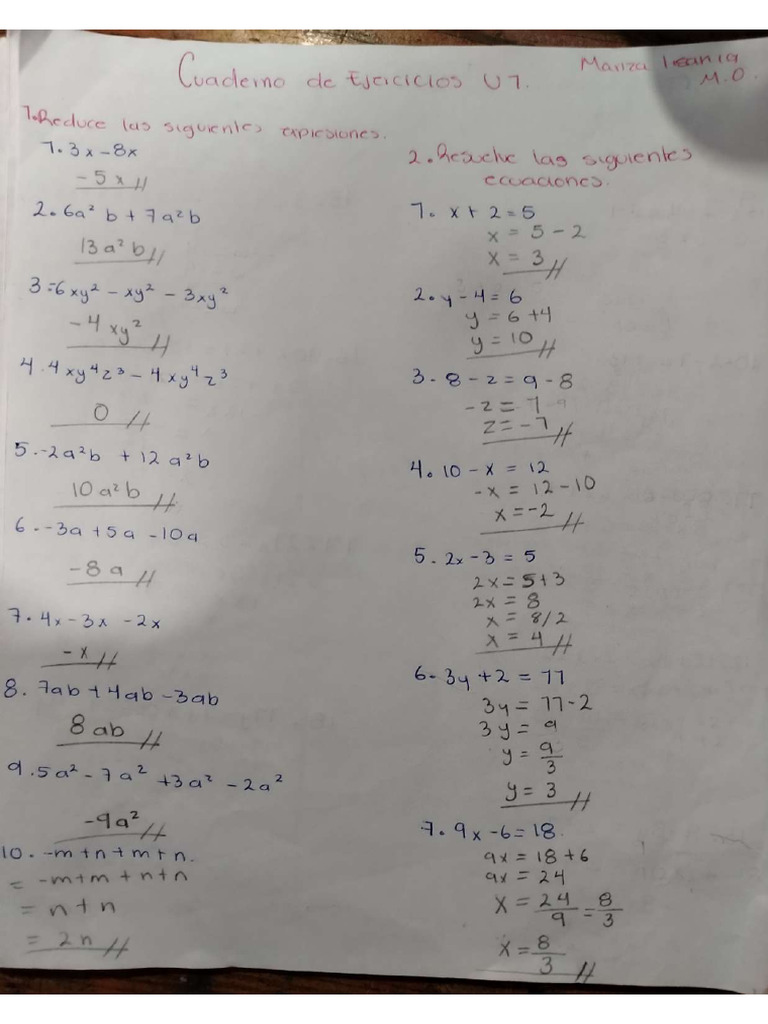 Cuaderno de Ejercicios U1.
Mariza
M.O.
1.Reduce las siguientes expresiones.
1.3x-8x
-5x//
2.6a² b + 7a²b
13a²b//
3.-6xy² - xy² - 3xy²
-4xy²//
4.4xy⁴z³ - 4xy⁴z³
0//
5.-2a²b + 12a²b
10a²b//
6.-3a+5a-10a
-8a//
7.4x-3x-2x
-x//
8.7ab+4ab-3ab
8ab//
9.5a²-7a²+3a²-2a²
-9a²//
10.-m+n+m+n.
=-m+m+n+n
=n+n
=2n//
2.Resuelve las siguientes
ecuaciones.
1. x+2=5
x=5-2
x=3//
2.y-4=6
y=6+4
y=10//
3.8-z=9-8
-z=1
z=-1//
4.10-x=12
-x=12-10
x=-2//
5.2x-3=5
2x=5+3
2x=8
x=8/2
x=4//
6.3y+2=11
3y=11-2
3y=9
y=9/3
y=3//
7.9x-6=18.
9x=18+6
9x=24
x=24/9=8/3
x=8/3//